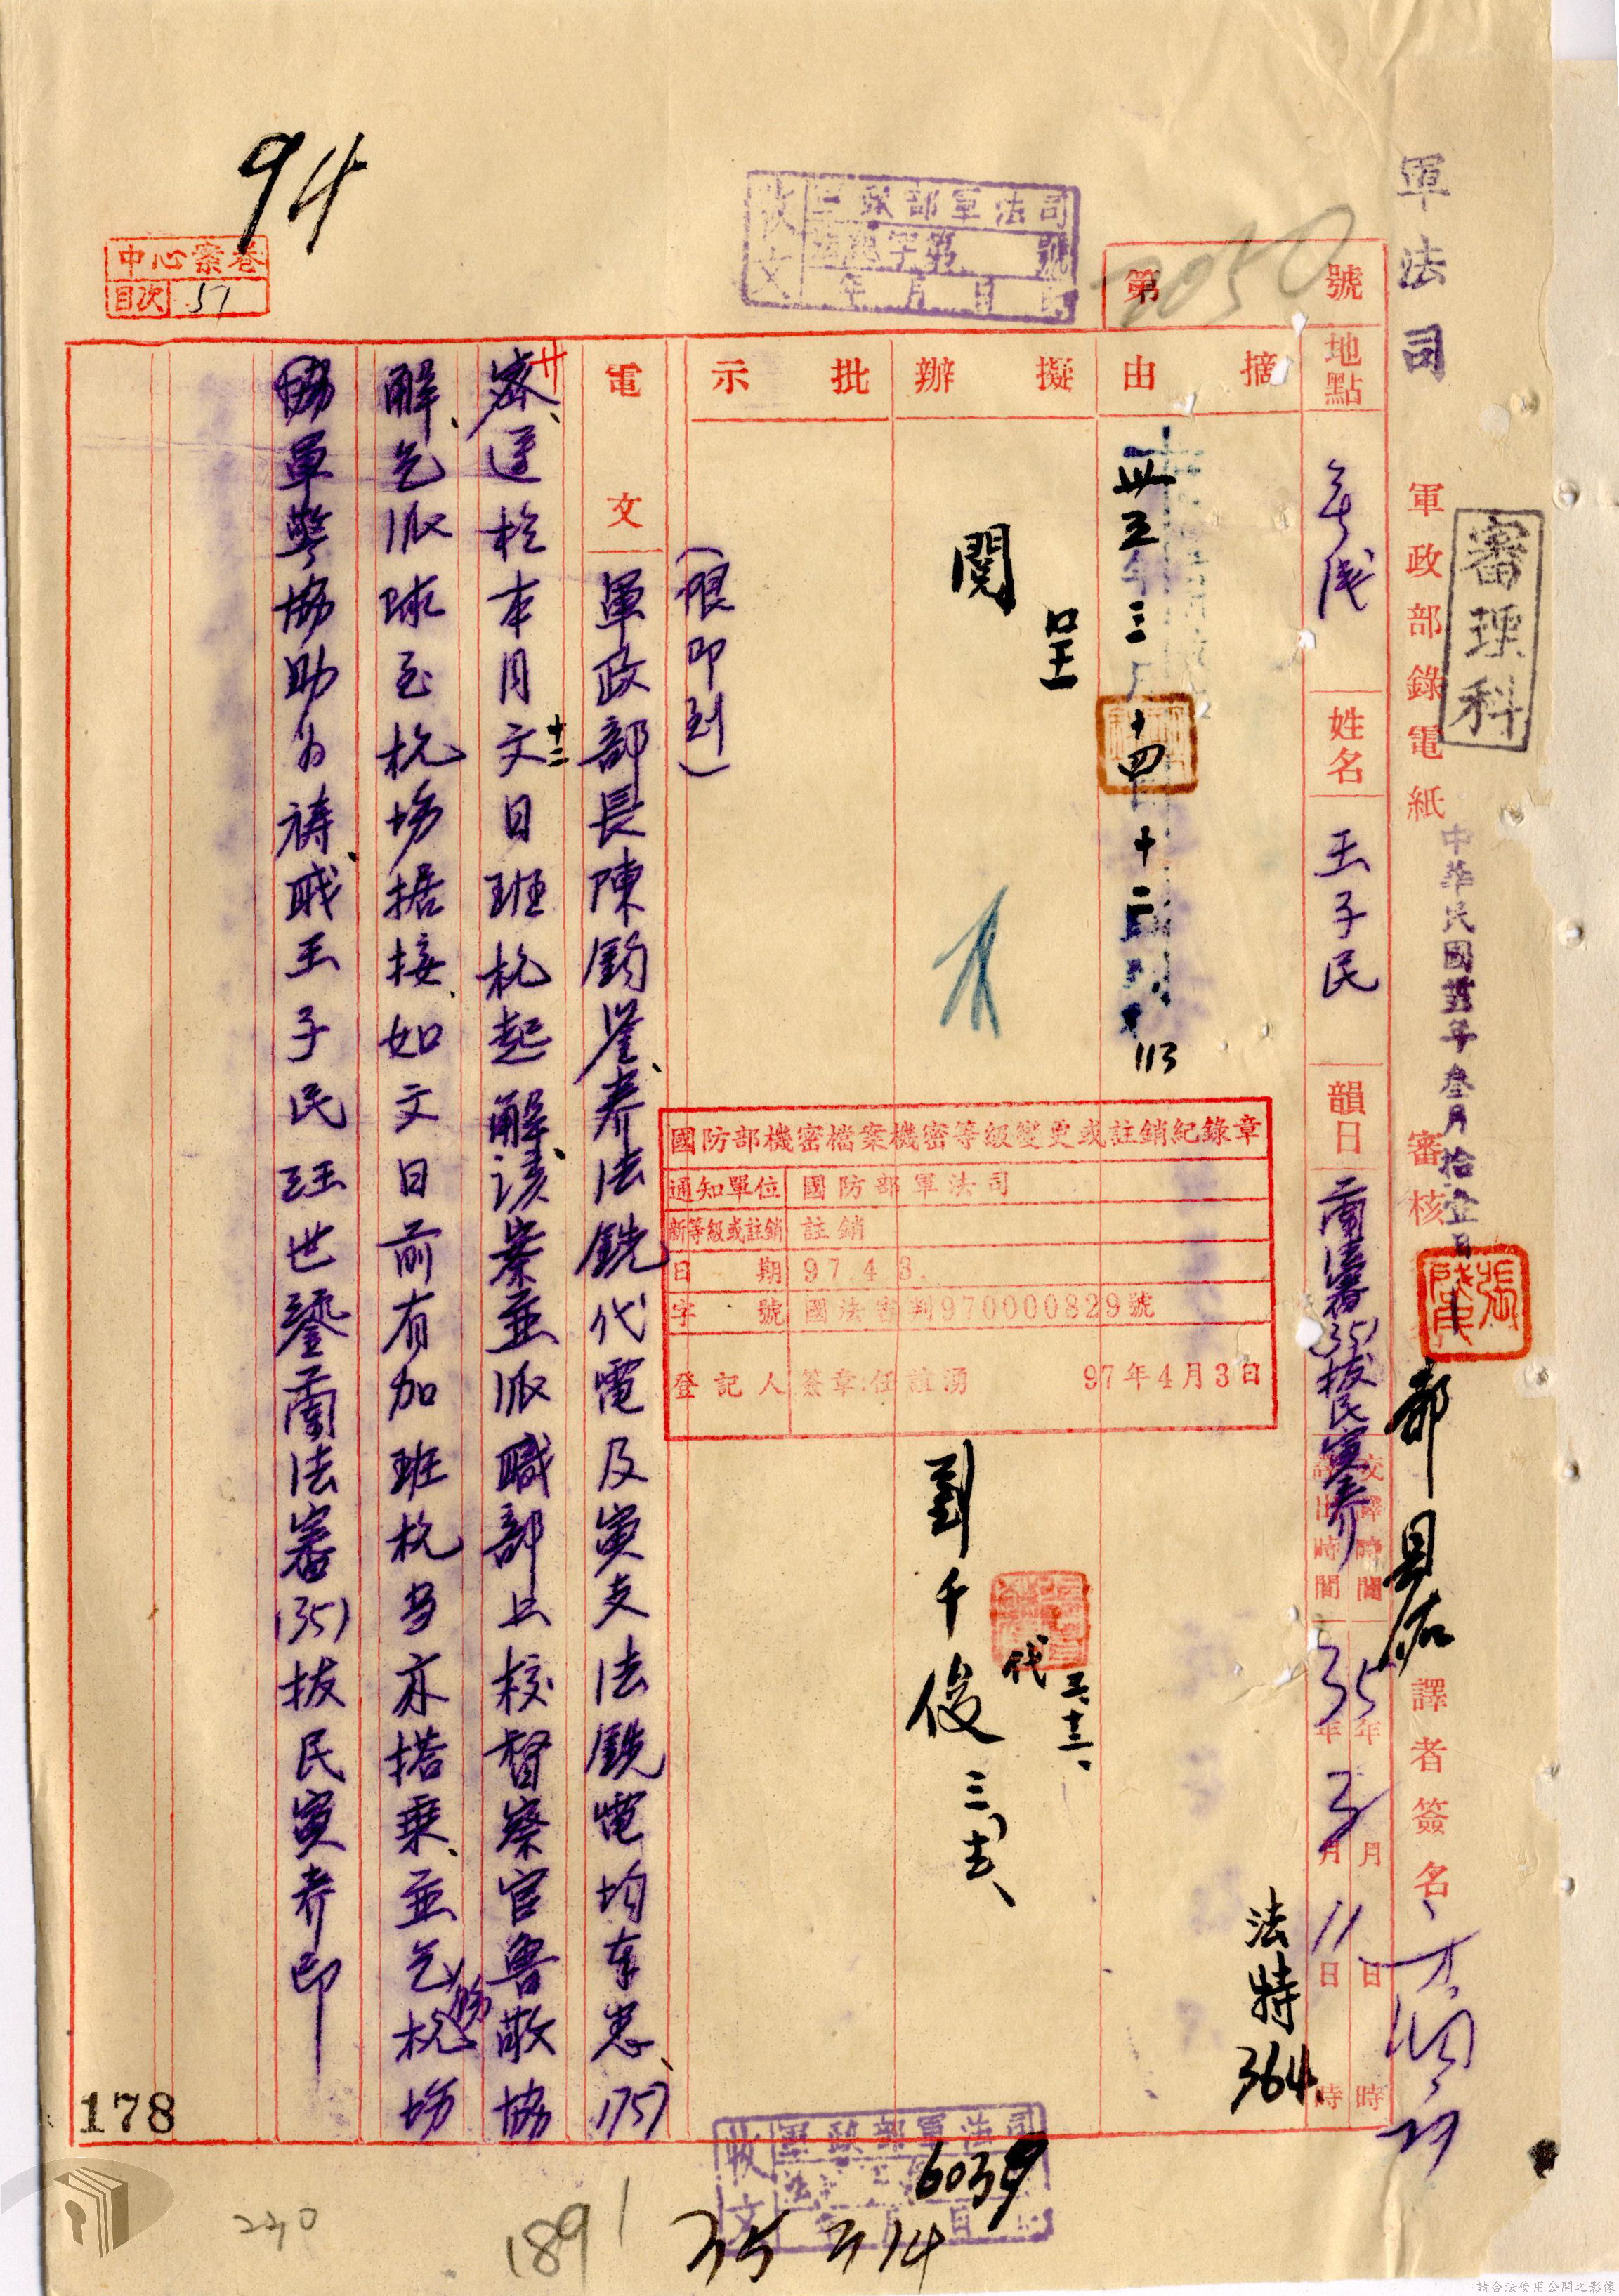 軍法司
審理科
軍政部錄電紙
中華民國卅五年叁月拾壹日
審核
郝
譯者簽名
第 號
2050
地點
姓名 王子民
韻日 蘭法審(35)拔民寅養
譯出時間 35年3月11日 時
校譯時間 年 月 日 時
法特364
摘由
卅五年三月十四日十二
113
擬辦
呈
閱
代 三、十三、
劉千俊 三、
批示
(限即到)
電文 軍政部長陳鈞鑒、養法銑代電及寅支法銑電均奉悉、(75)
密、遵於本月文十二日班杭起解、該案並派職部上校督察官魯敬協
解、乞派隊至杭場据接、如文日前有加班杭多亦搭乘、並乞杭場
協軍警協助為禱、職王子民汪世鎏蘭法審(35)拔民寅養印
國防部機密檔案機密等級變更或註銷紀錄章
通知單位 國防部軍法司
新等級或註銷 註銷
日期 97.4.3.
字號 國法審判970000829號
登記人 簽章:任誼湧 97年4月3日
收文 軍政部軍法司
字第 號
年 月 日
94
中心案卷
目次 57
178
收文 軍政部軍法司
6039
35 3 14
1891
220
請合法使用公開之影像